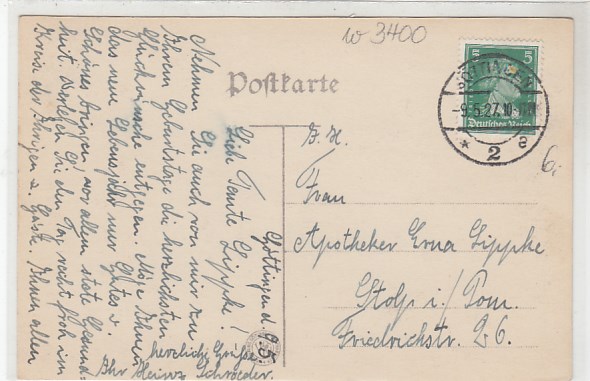 w 3400
Postkarte
5
Deutsches Reich
GÖTTINGEN
-9.5.27.10-11
* 2 e
6,-
B. H.
Frau
Apotheker Erna Lippke
Stolp i./Pom.
Friedrichstr. 26.
Göttingen d. 9.5.
Liebe Tante Lippke!
Nehmen Sie auch von mir zu
Ihrem Geburtstage die herzlichsten
Glückwünsche entgegen. Möge Ihnen
das neue Lebensjahr nur Gutes u.
Schönes bringen! vor allem stete Gesund-
heit. Verleben Sie den Tag recht froh im
Kreise der Ihrigen u. Gäste. Ihnen allen
herzliche Grüße
Ihr Heinz Schroeder.